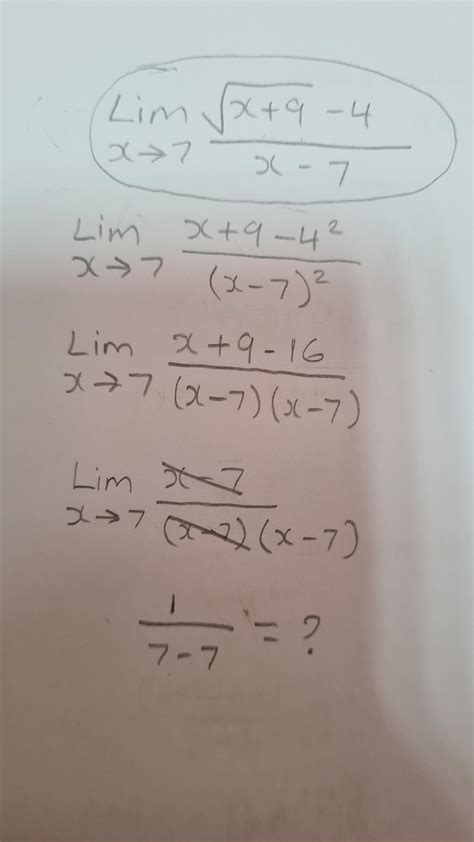 Lim x→7 (√(x+9) - 4)/(x - 7)
Lim x→7 (x+9-4²)/((x-7)²)
Lim x→7 (x+9-16)/((x-7)(x-7))
Lim x→7 (x-7)/((x-7)(x-7))
1/(7-7) = ?